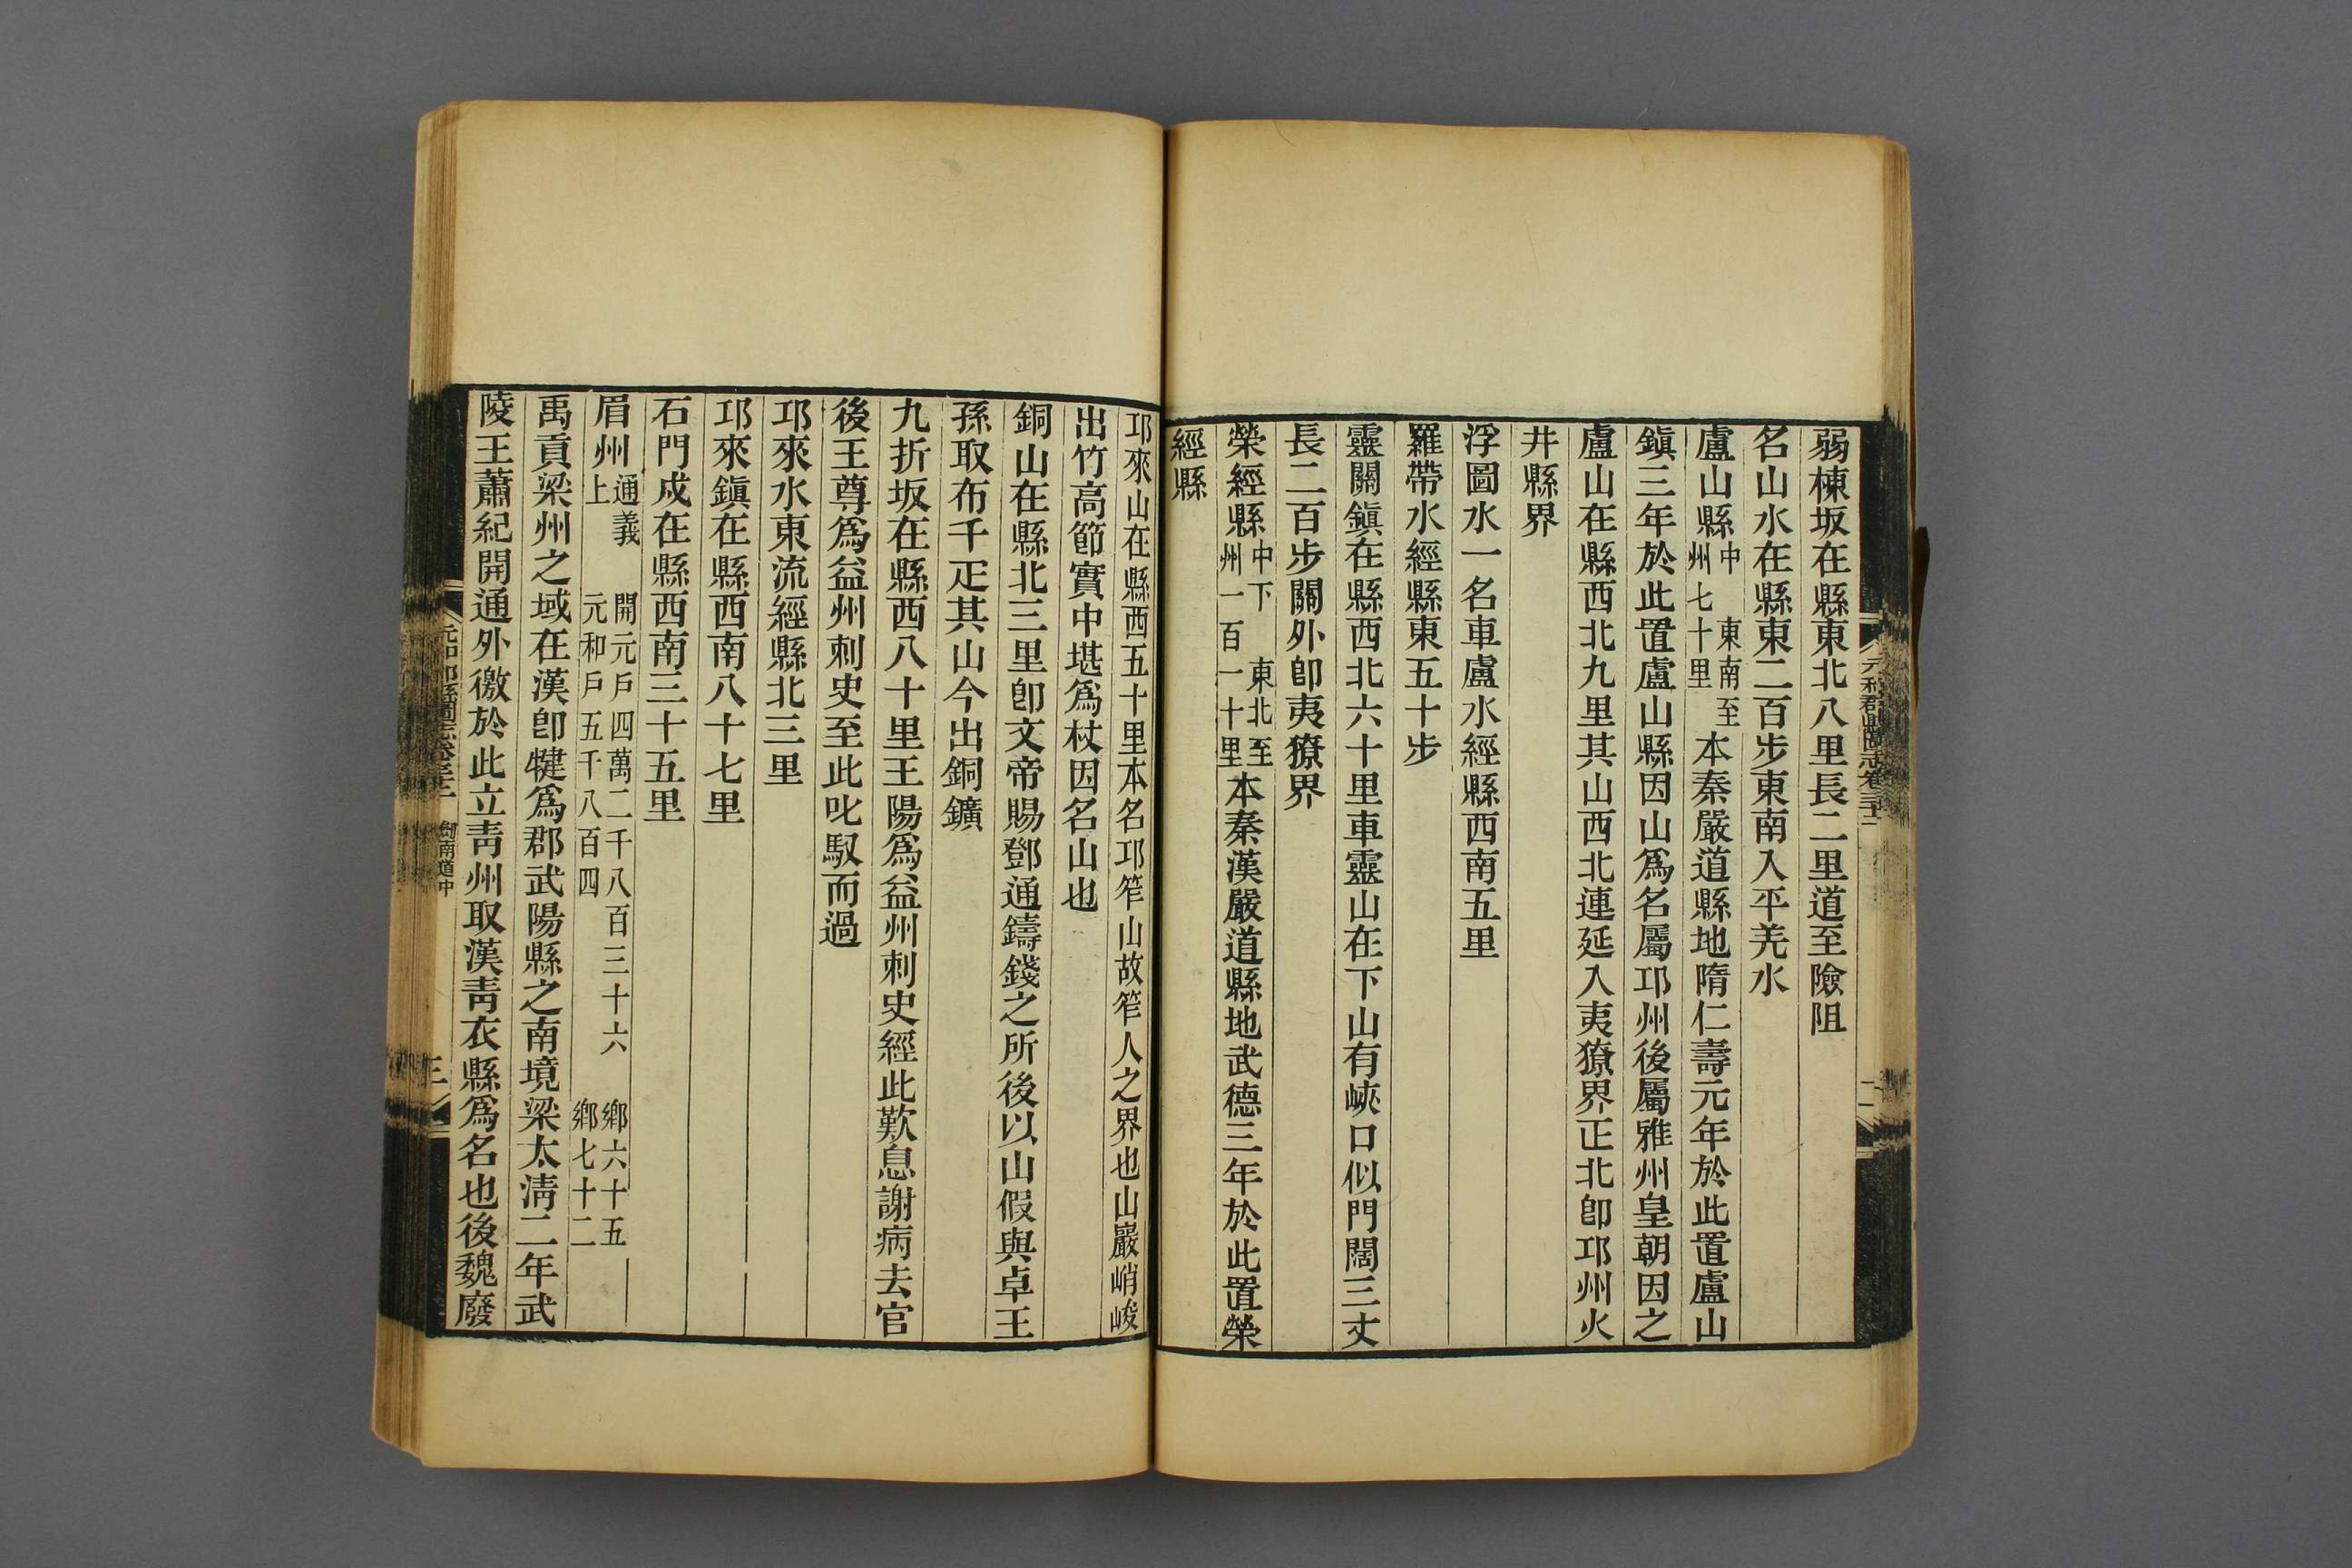 弱棟坂在縣東北八里長二里道至險阻
名山水在縣東二百步東南入平羌水
盧山縣中 東南至州七十里本秦嚴道縣地隋仁壽元年於此置盧山
鎭三年於此置盧山縣因山爲名屬邛州後屬雅州皇朝因之
盧山在縣西北九里其山西北連延入夷獠界正北卽邛州火
井縣界
浮圖水一名車盧水經縣西南五里
羅帶水經縣東五十步
靈關鎭在縣西北六十里車靈山在下山有峽口似門闊三丈
長二百步關外卽夷獠界
榮經縣中下 東北至州一百一十里本秦漢嚴道縣地武德三年於此置榮
經縣
邛來山在縣西五十里本名邛筰山故筰人之界也山巖峭峻
出竹高節實中堪爲杖因名山也
銅山在縣北三里卽文帝賜鄧通鑄錢之所後以山假與卓王
孫取布千疋其山今出銅鑛
九折坂在縣西八十里王陽爲益州刺史經此歎息謝病去官
後王尊爲益州刺史至此叱馭而過
邛來水東流經縣北三里
邛來鎭在縣西南八十七里
石門戍在縣西南三十五里
眉州通義上 開元戶四萬二千八百三十六 鄉六十五 元和戶五千八百四 鄉七十二
禹貢梁州之域在漢卽犍爲郡武陽縣之南境梁太淸二年武
陵王蕭紀開通外徼於此立靑州取漢靑衣縣爲名也後魏廢
元和郡縣圖志卷三十二 劍南道中
三